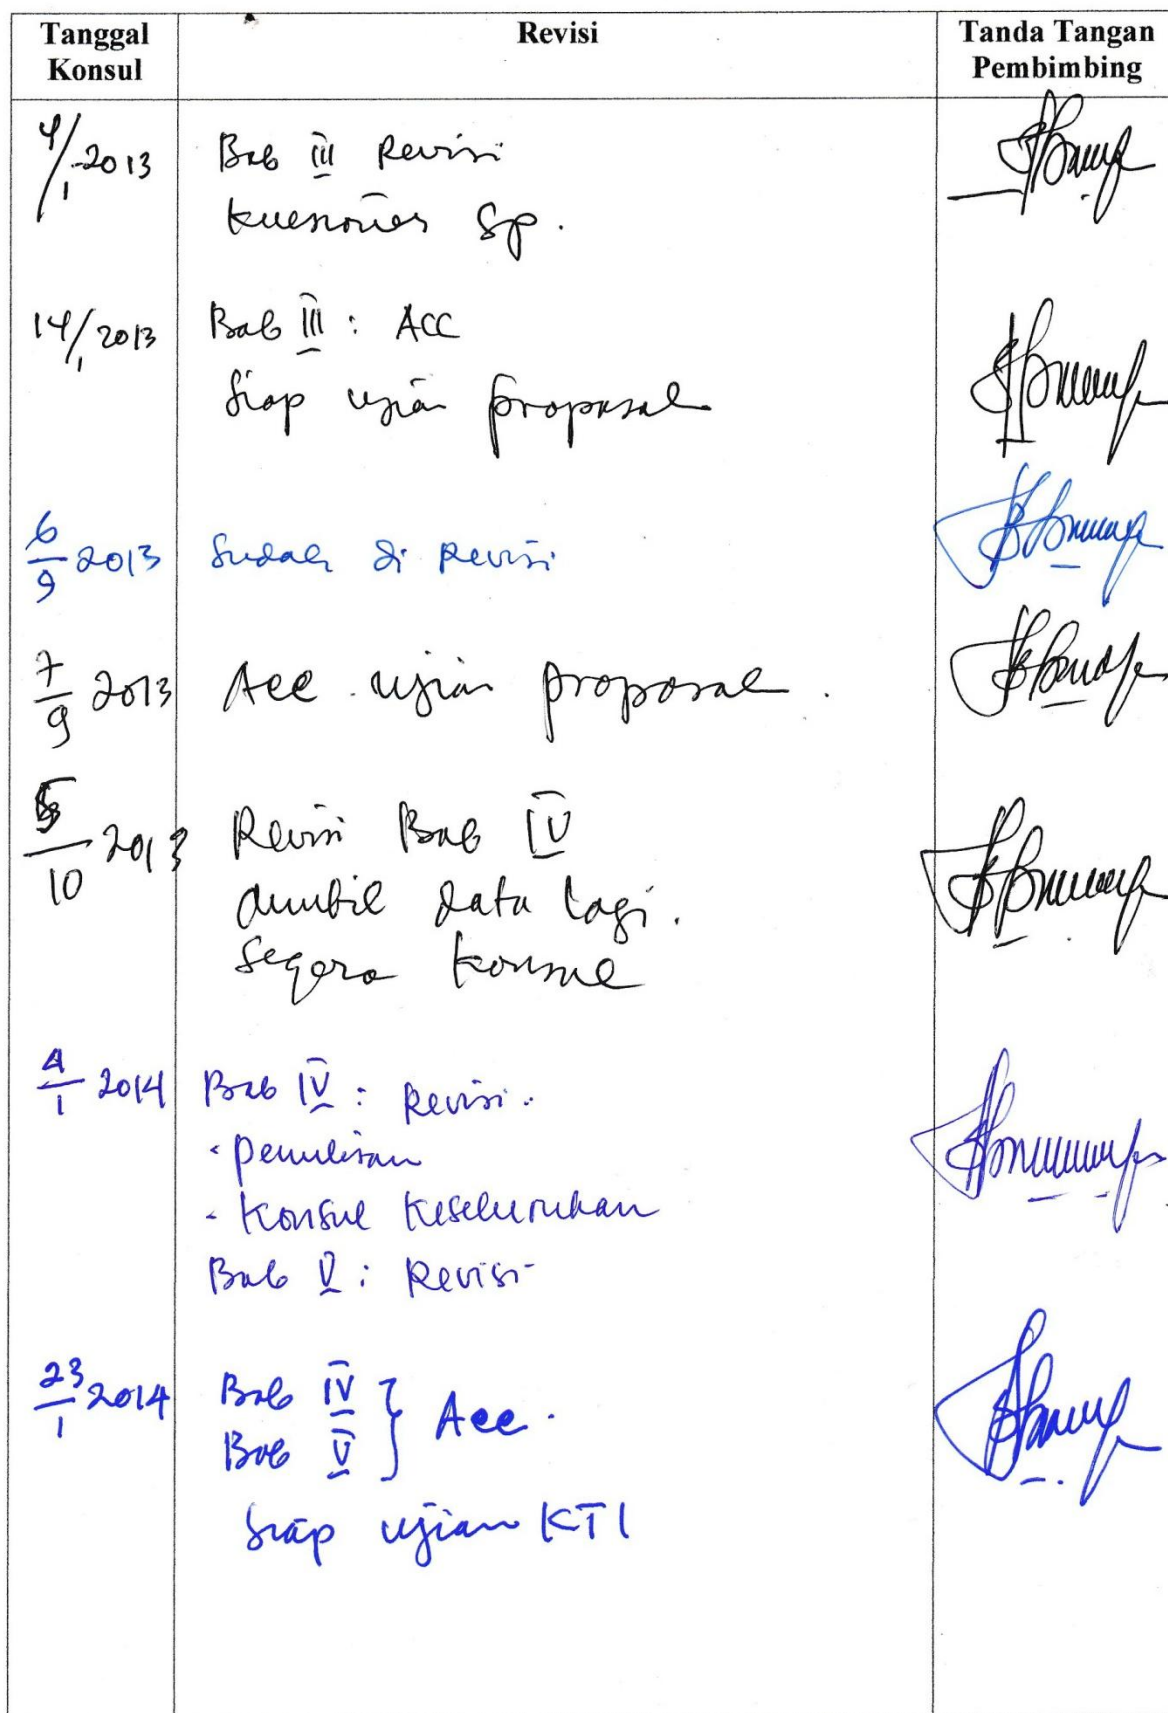 Tanggal Konsul
Revisi
Tanda Tangan Pembimbing
4/1 2013
Bab III Revisi
Kuesioner
14/1 2013
Bab III : ACC
Siap ujian proposal
6/9 2013
Sudah di Revisi
7/9 2013
Acc ujian proposal .
5/10 2013
Revisi Bab IV
Ambil data lagi .
Segera konsul
4/1 2014
Bab IV : Revisi .
- penulisan
- Konsul Keseluruhan
Bab V : Revisi
23/1 2014
Bab IV
Bab V } Acc .
Siap ujian KTI